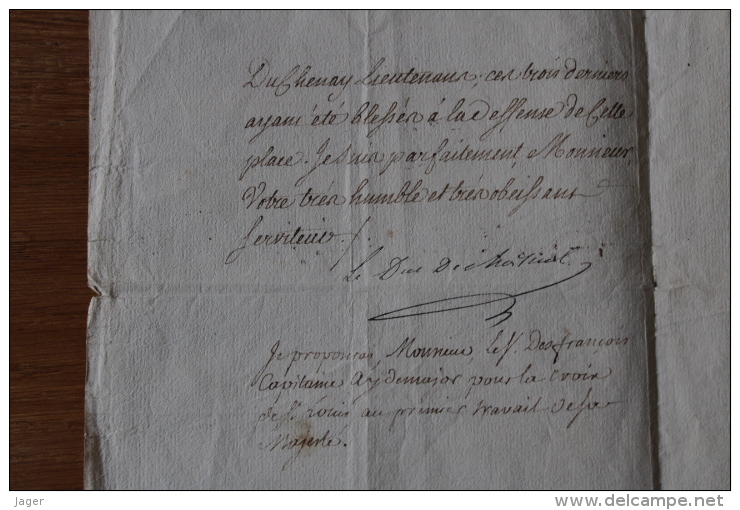 DuChenay Lieutenans, ces trois derniers
ayant été blessés á la deffense de Cette
place. Je suis parfaitement Monsieur,
Votre trés humble et trés obeissant
serviteur./.
Le Duc De choiseul
Je proposerai, Monsieur, Le S. Desfrançois
Capitaine Aydemajor pour la croix
de St. Louis au premier travail de sa
Majesté.
jager
www.delcampe.net